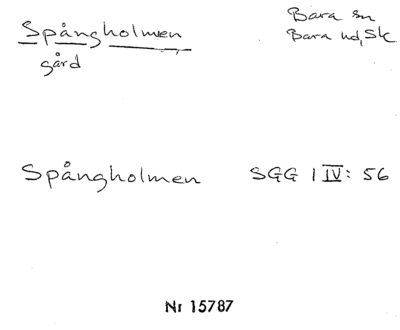 Spångholmen
gård
Bara sn
Bara hd, Sk
Spångholmen SGG I IV: 56
Nr 15787